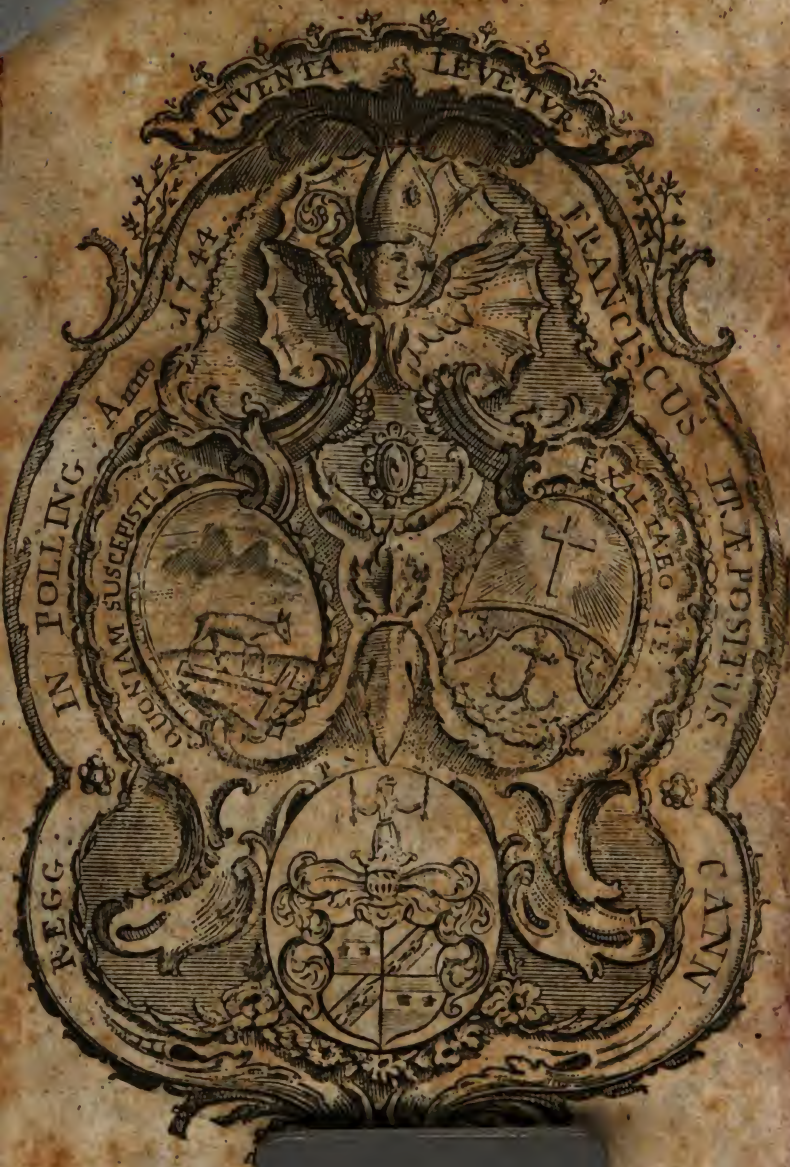 INVENTA LEVETVR
FRANCISCUS PRÆPOSITUS.
CANN
REGG.
IN POLLING. Anno 1744.
QUONIAM SUSCEPISTI ME
EXALTABO TE